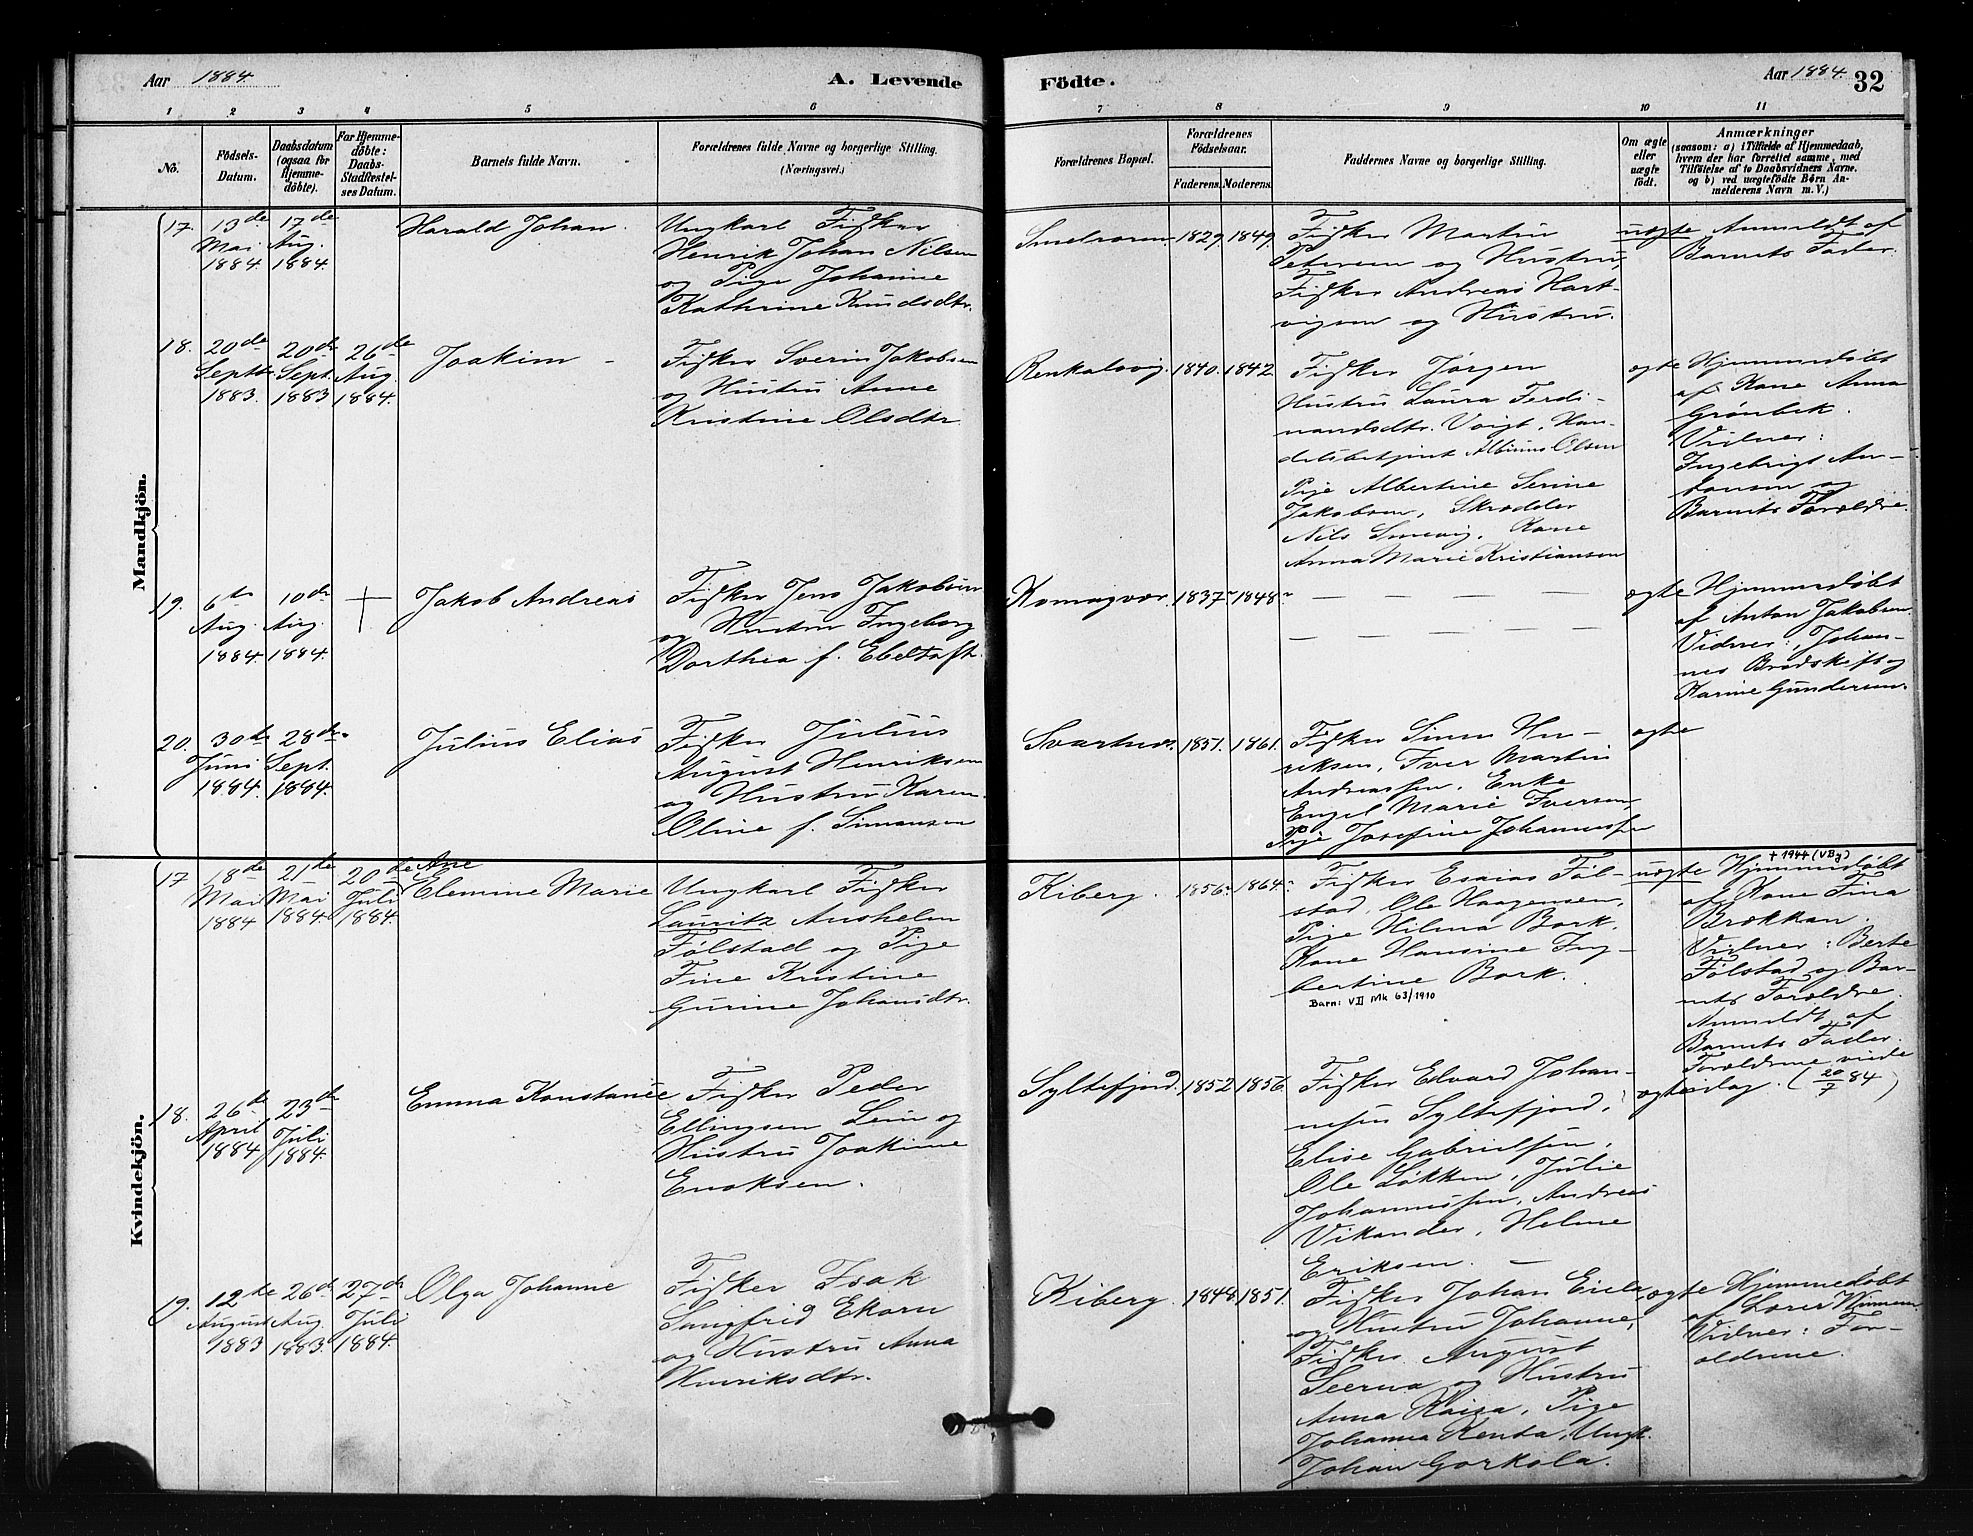 Aar 1884.
A. Levende
Födte.
Aar 1884.
32
1 2 3 4 5 6 7 8 9 10 11
No.
Födsels-
Datum.
Daabsdatum
(ogsaa for
Hjemme-
döbte).
For Hjemme-
döbte:
Daabs-
Stadfæstel-
ses Datum.
Barnets fulde Navn.
Forældrenes fulde Navne og borgerlige Stilling.
(Næringsvei.)
Forældrenes Bopæl.
Forældrenes
Födselsaar.
Faderens. Moderens.
Faddernes Navne og borgerlige Stilling.
Om ægte
eller
uægte
födt.
Anmærkninger
(saasom: a) i Tilfælde af Hjemmedaab,
hvem der har forrettet samme, med
Tilföielse af to Daabsvidners Navne.
og b) ved uægtefödte Börn An-
melderens Navn m. V.)
Mandkjön.
17.
13de
Mai
1884.
17de
Aug.
1884.
Harald Johan.
Ungkarl Fisker
Henrik Johan Nilsen
og Pige Johanne
Kathrine Knudsdtr.
Smelroren
1829. 1849.
Fisker Martin
Petersen og Hustru,
Fisker Andreas Hart-
vigsen og Hustru.
uægte
Anmeldt af
Barnets Fader.
18.
20de
Septb.
1883.
20de
Sept.
1883
26de
Aug.
1884.
Joakim –
Fisker Sverin Jakobsen
og Hustru Anne
Kristine Olsdtr
Renkalsvig.
1840. 1842
Fisker Jørgen
Hustru Laura Ferdi-
nandsdtr. Voigt, Han-
delsbetjent Albinus Olsen
Pige Albertine Serine
Jakobsen, Skrædder
Nils Smevig, Kone
Anna Marie Kristiansen
ægte
Hjemmedøbt
af Kone Anna
Grønbek.
Vidner:
Ingebrigt An-
tonsen og
Barnets Forældre.
19.
6te
Aug.
1884.
10de
Aug.
1884.
Jakob Andreas
Fisker Jens Jakobsen
og Hustru Ingeborg
Dorthea f. Ebeltoft.
Komagvær.
1837 1848
ægte
Hjemmedøbt
af Anton Jakobsen
Vidner: Johan-
nes Brodskift og
Karine Gundersen.
20.
30te
Juni
1884.
28de
Sept.
1884.
Julius Elias
Fisker Julius
August Henriksen
og Hustru Karen
Oline f. Simonsen
Svartnes.
1851. 1861.
Fisker Simon Hen-
riksen, Iver Martin
Andreassen, Enke
Engel Marie Iversen,
Pige Josefine Johannessen
ægte
Kvindekjön.
17
18de
Mai
1884
21de
Mai
1884.
20de
Juli
1884.
Ane
Elemine Marie
Ungkarl Fisker
Lauritz Anshelm
Følstad og Pige
Fine Kristine
Gurine Johansdtr.
Kiberg.
1856. 1864.
Fisker Esaias Føl-
stad, Ole Haagensen,
Pige Hilma Bork.
Kone Hansine Ing-
bertine Bork.
Barn: VII Mk 63/1910
uægte
+ 1944 (VBy)
Hjemmedøbt
af Kone Fina
Brækkan.
Vidner: Berte
Følstad og Bar-
nets Forældre.
Anmeldt af
Barnets Fader.
Forældrene viede
idag. (20/7 84)
18.
26de
April
1884
23de
Juli
1884.
Emma Konstance
Fisker Peder
Ellingsen Lein og
Hustru Joakime
Enoksen.
Syltefjord.
1852 1856
Fisker Edvard Johan-
nesen Syltefjord,
Elise Gabrielsen,
Ole Løkken, Julie
Johannessen, Andreas
Vikander, Helene
Eriksen. –
ægte
19.
12te
August
1883
26de
Aug.
1883.
27de
Juli
1884.
Olga Johanne
Fisker Isak
Sangfrid Ekorn
og Hustru Anna
Henriksdtr.
Kiberg.
1848 1851.
Fisker Johan Eriks
og Hustru Johanne,
Fisker August
Seerwa og Hustru
Anna Kaisa, Pige
Johanna Kenta, Ungk.
Johan Gorkola.
ægte
Hjemmedøbt
af Lærer
Vidner: For-
ældrene.